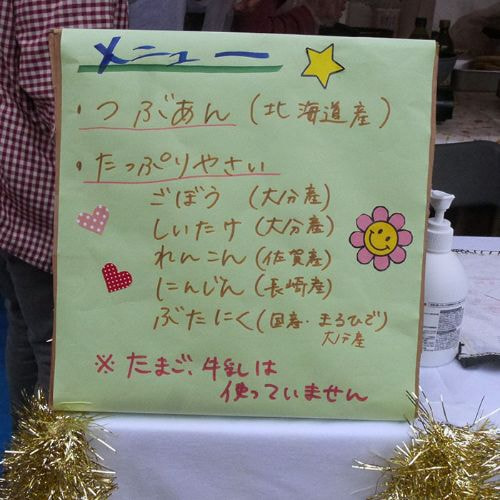 メニュー
・つぶあん(北海道産)
・たっぷりやさい
ごぼう (大分産)
しいたけ (大分産)
れんこん (佐賀産)
にんじん (長崎産)
ぶたにく (国産・まるひで)
大分産
※ たまご、牛乳は
使っていません